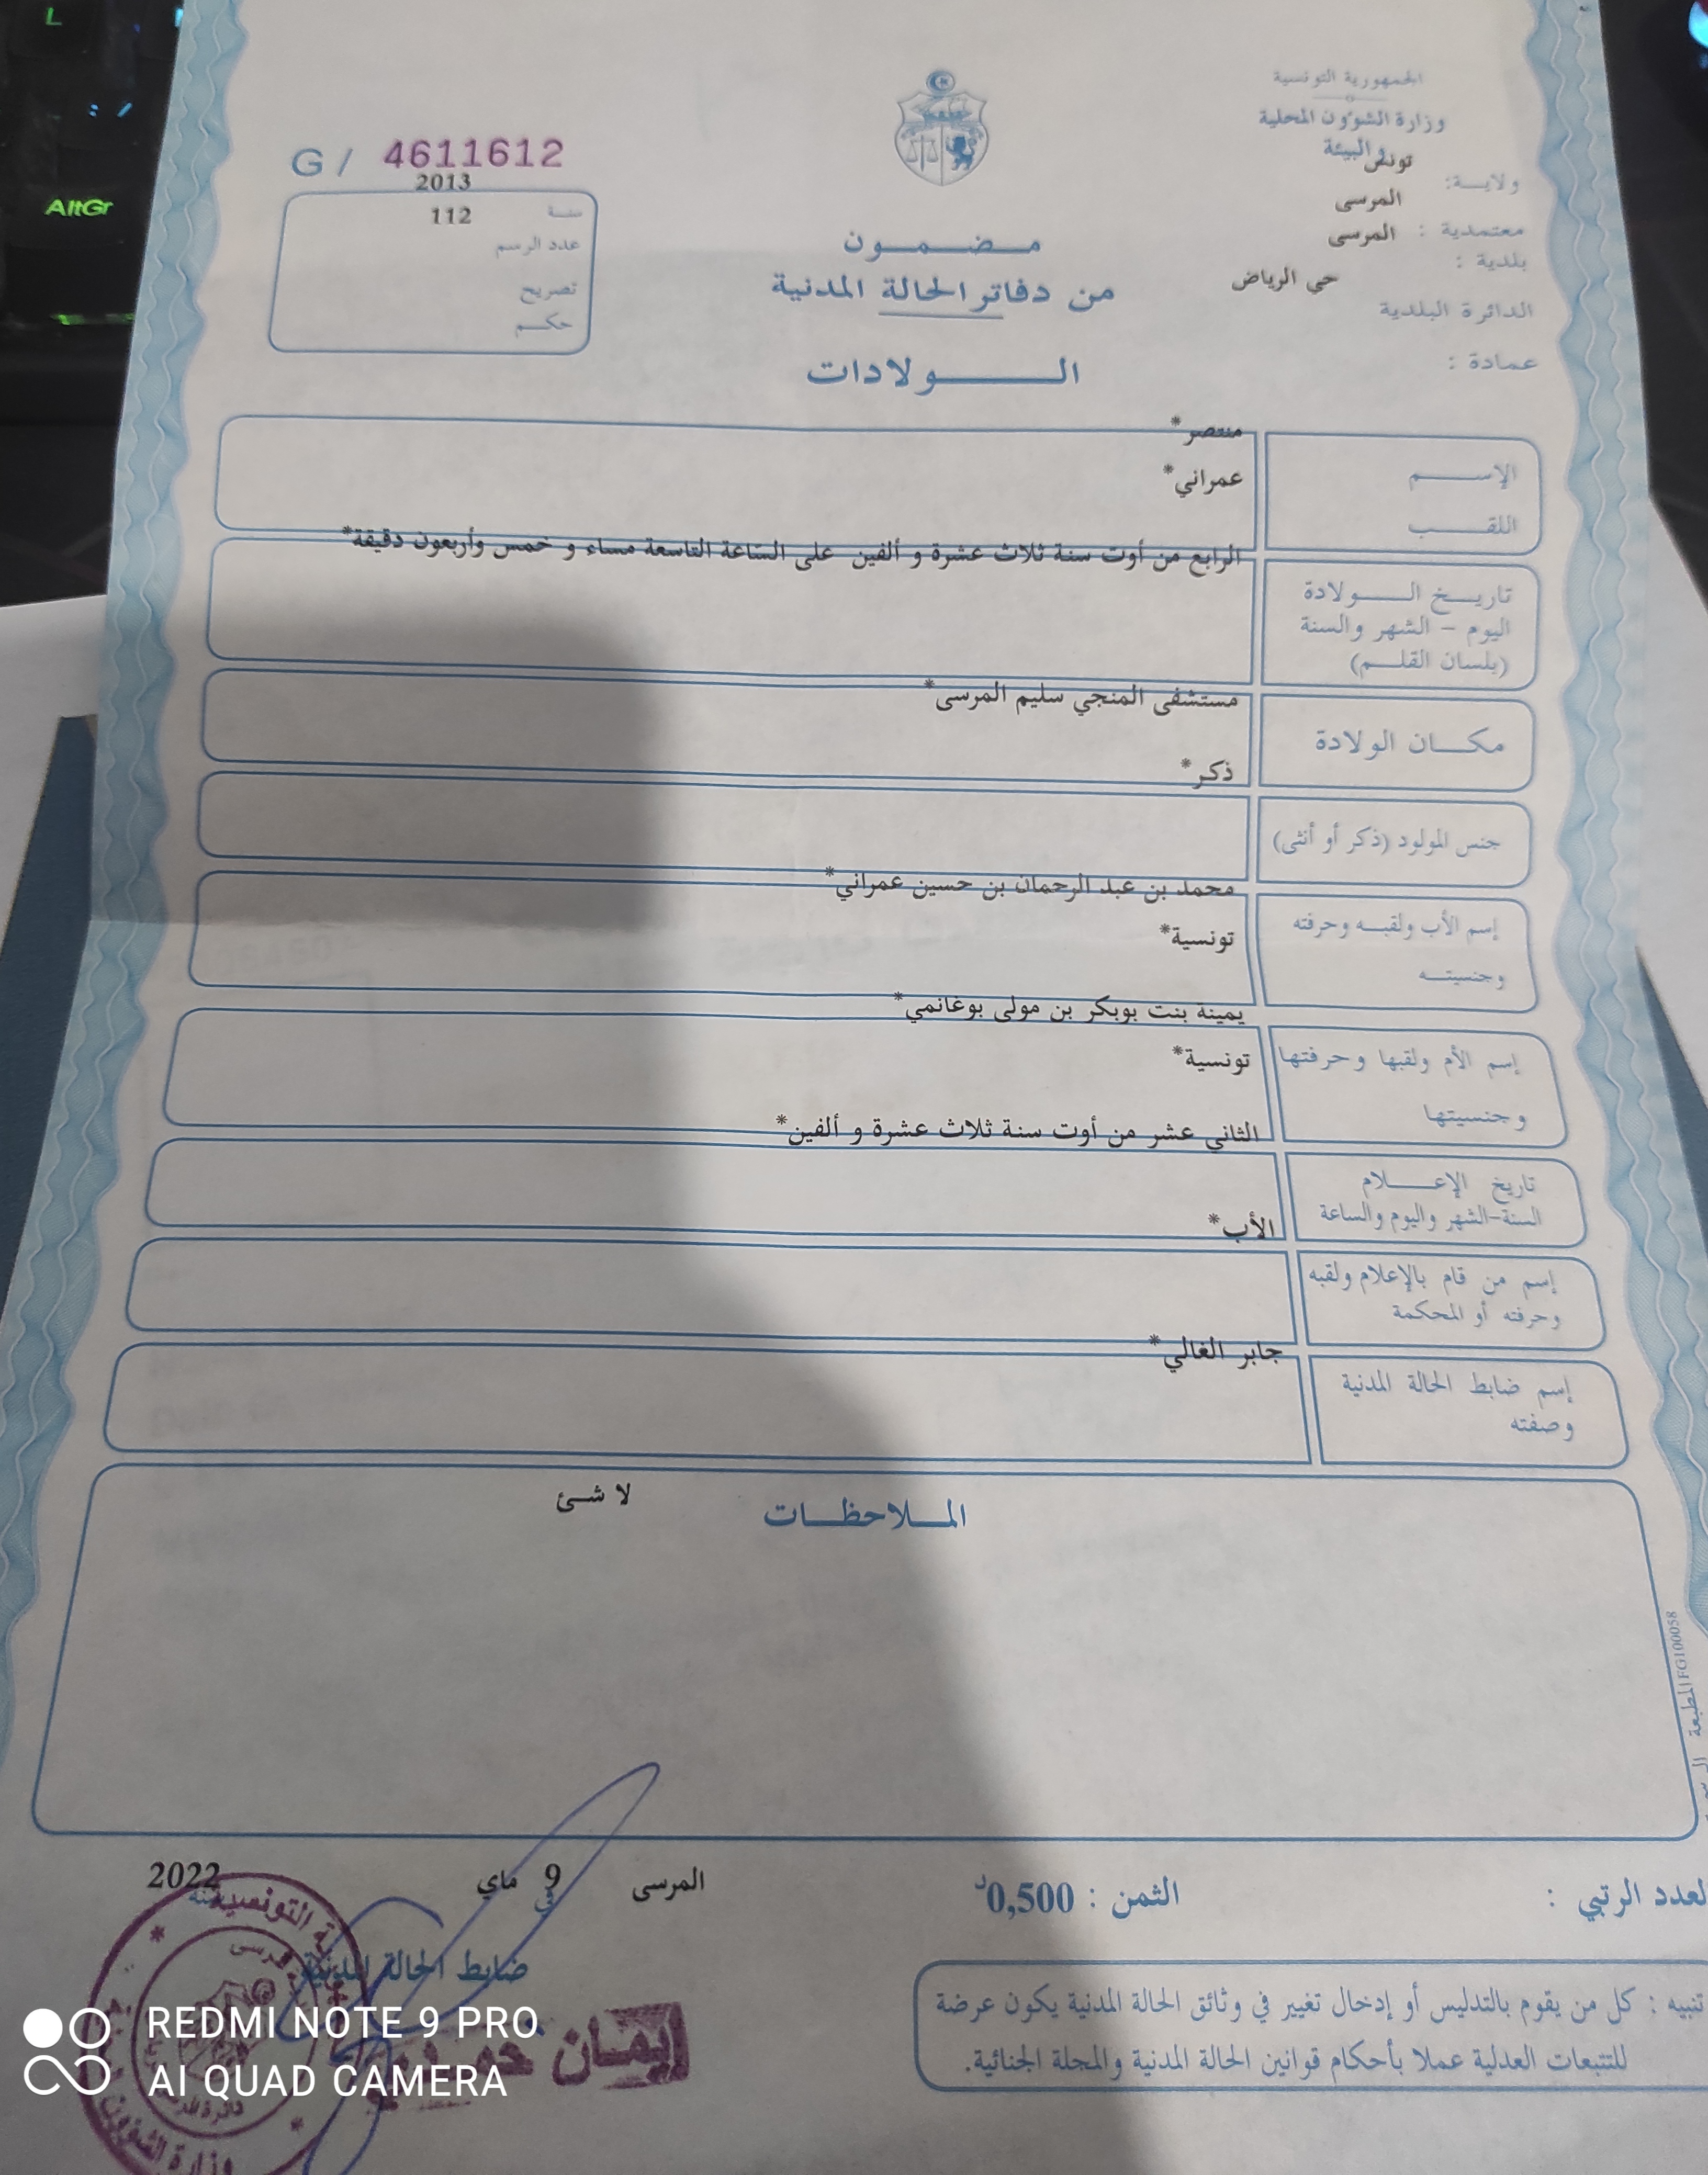 الجمهورية التونسية
وزارة الشؤون المحلية
و البيئة
ولايـــة: تونس
معتمدية : المرسى
بلدية : المرسى
الدائرة البلدية حي الرياض
عمادة :
G / 4611612
سنة 2013
عدد الرسم 112
تصريح
حكم
مضمون
من دفاتر الحالة المدنية
الولادات
الإسم منتصر*
اللقب عمراني*
تاريخ الولادة
اليوم - الشهر والسنة
(بلسان القلم)
الرابع من أوت سنة ثلاث عشرة و ألفين على الساعة التاسعة مساء و خمس وأربعون دقيقة*
مكان الولادة
مستشفى المنجي سليم المرسى*
جنس المولود (ذكر أو أنثى)
ذكر*
إسم الأب ولقبه وحرفته
وجنسيته
محمد بن عبد الرحمان بن حسين عمراني*
تونسية*
إسم الأم ولقبها وحرفتها
وجنسيتها
يمينة بنت بوبكر بن مولى بوغانمي*
تونسية*
تاريخ الإعلام
السنة-الشهر واليوم والساعة
الثاني عشر من أوت سنة ثلاث عشرة و ألفين*
إسم من قام بالإعلام ولقبه
وحرفته أو المحكمة
الأب*
إسم ضابط الحالة المدنية
وصفته
جابر الغالي*
الملاحظات
لا شئ
FG100058 المطبعة
العدد الرتبي :
الثمن : 0,500د
المرسى في 9 ماي سنة 2022
ضابط الحالة المدنية
إيمان
تنبيه : كل من يقوم بالتدليس أو إدخال تغيير في وثائق الحالة المدنية يكون عرضة
للتتبعات العدلية عملا بأحكام قوانين الحالة المدنية والمجلة الجنائية.
وزارة الشؤون
REDMI NOTE 9 PRO
AI QUAD CAMERA
L
AltGr
: /